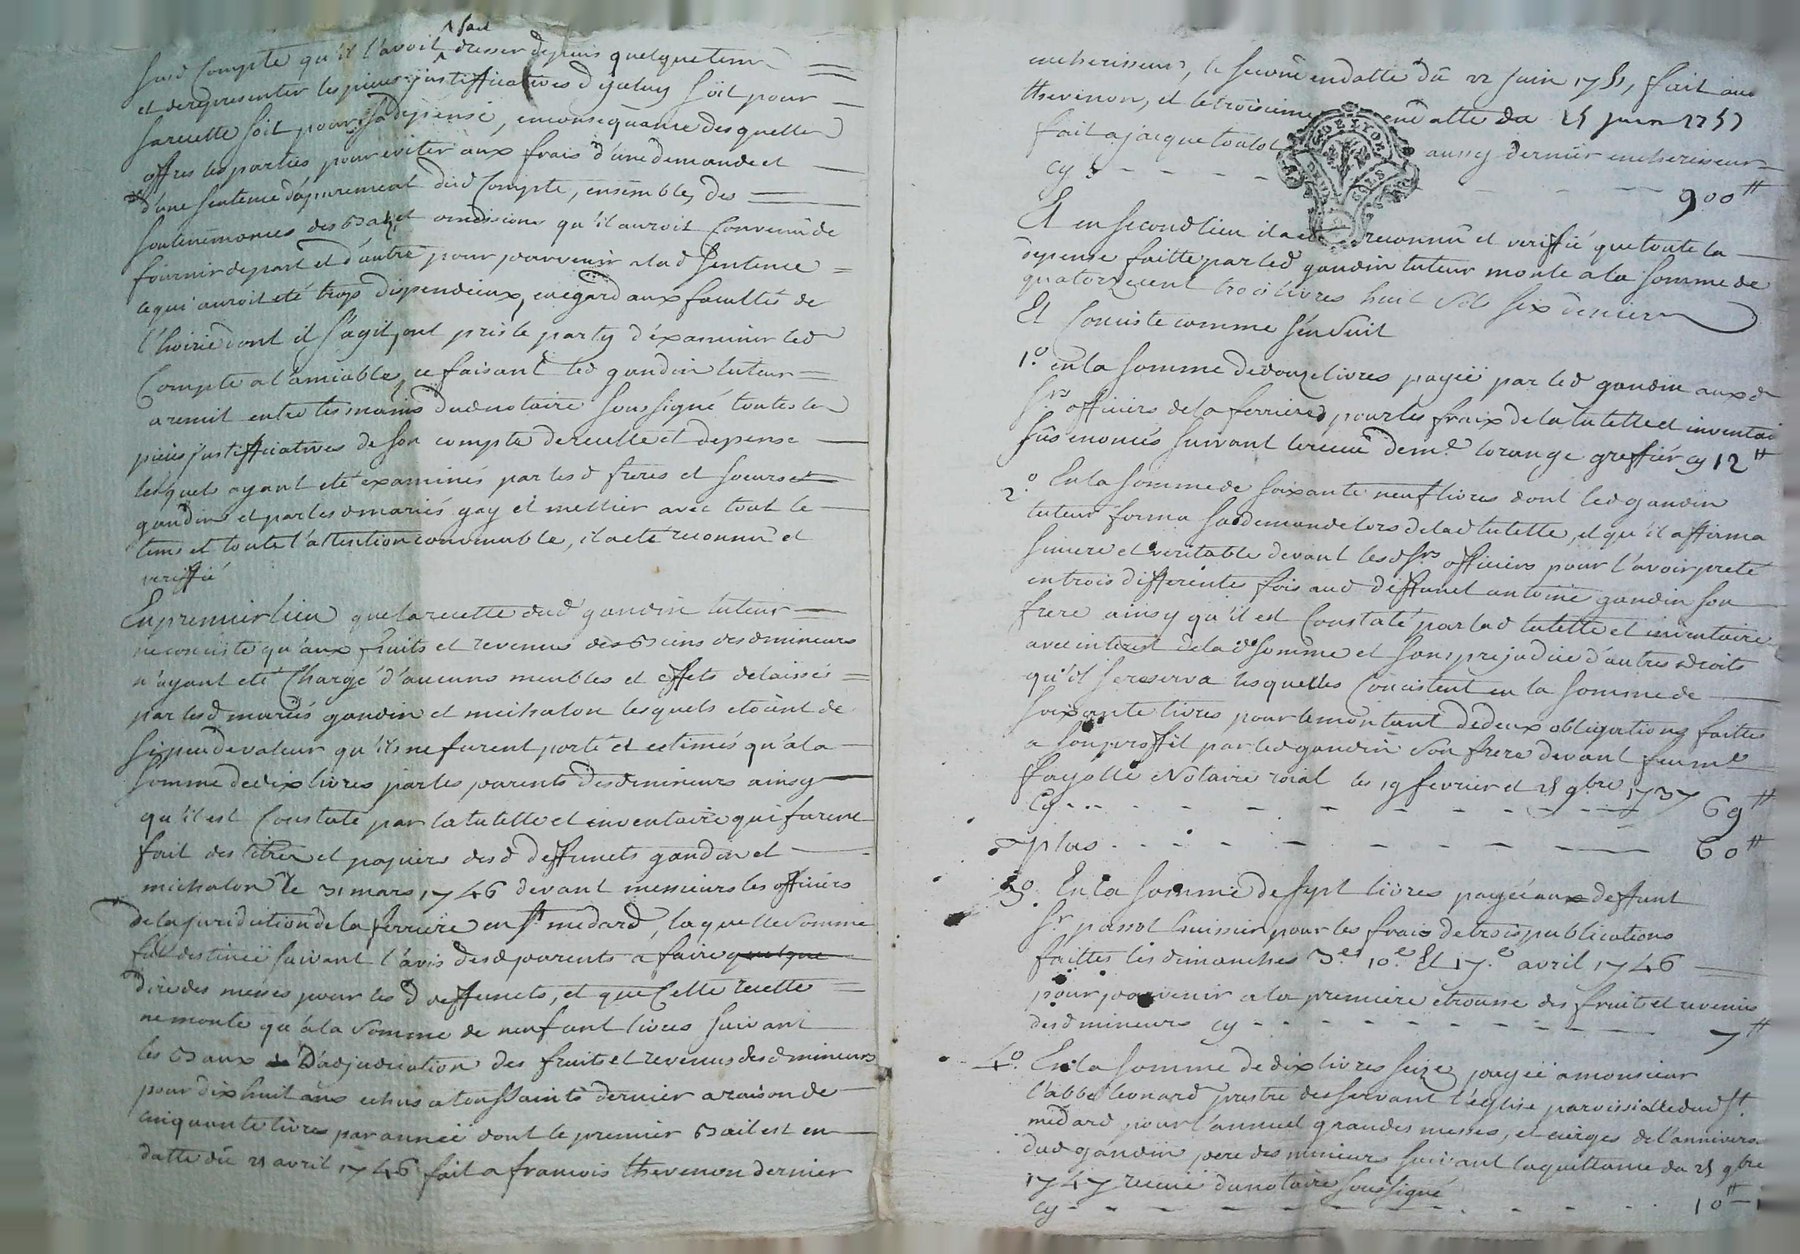 fait
susd Compte qu'il l'avoit dresser depuis quelque tems
et de representer les pieces justifficatives d'yceluy soit pour
sa recette soit pour sa depense, en consequance desquelles
offres les parties pour eviter aux frais d'une demande et
d'une sentence d'apurement dud Compte, ensemble, des
soutenemences des et ondisions qu'il auroit Convenu de
fournir de part et d'autre pour parvenir a lad sentence
ce qui auroit eté trop dispendieux, en egard aux facultés de
l'hoirie dont il s'agit, ont pris le party d'examiner led
Compte a l'amiable, ce faisant led gaudin tuteur
a remit entre les mains dud notaire soussigné toutes les
pieces justifficatives de son compte de recette et depense
lesquels ayant eté examinés par lesd freres et soeurs
gaudin et par lesd mariés gay et mettier avec tout le
tems et toute l'attention convenable, il a eté reconnu et
veriffié
En premier lieu que la recette dud gaudin tuteur
ne conciste qu'aux fruits et revenus des Biens desd mineurs
n'ayant eté Chargé d'aucuns meubles et effets delaissés
par lesd mariés gaudin et michalon lesquels etoient de
si peu de valeur qu'ils ne furent porté et estimés qu'a la
somme de dix livres par les parents desd mineurs ainsy
qu'il est Constaté par la tutelle et inventaire qui furent
fait des titres et papiers desd deffunts gaudin et
michalon le 31 mars 1746 devant messieurs les officiers
de la juridiction de la ferriere en st medard, laquelle somme
fut destinée suivant l'avis desd parents a faire quelque
dire des messes pour les d deffunts, et que Cette recette
ne monte qu'a la somme de neuf cent livres suivant
les Baux D'adjudication des fruits et revenus desd mineurs
pour dix huit ans echus a toussaints dernier a raison de
cinquante livres par année dont le premier Bail est en
datte du 21 avril 1746 fait a francois thevenon dernier
encherisseur, le second en datte du 22 juin 1751, fait aud
thevenon, et le troisieme en datte du 25 juin 1757
fait a jacque toulot aussy dernier encherisseur
Cy - - - - 900tt
Et en second lieu il a eté reconnu et veriffié que toute la
depense faitte par led gaudin tuteur monte a la somme de
quatorze cent trois livres huit sols six deniers
Et Conciste comme s'en suit
1.o en la somme de douze livres payée par led gaudin aux d
srs officiers de la ferriere pour les fraix de la tutelle et inventai
sus enoncés suivant le reçu de me lorange greffier cy 12tt
2.o En la somme de soixante neuf livres dont led gaudin
tuteur forma sa demande lors de lad tutelle, et qu'il affirma
sincere et veritable devant lesd srs officiers pour l'avoir preté
en trois differentes fois aud deffunct antoine gaudin son
frere ainsy qu'il est Constaté par lad tutelle et inventaire
avec interest de lad somme et sans prejudice d'autres droits
qu'il se reserva lesquelles Concistent en la somme de
soixante livres pour le montant de deux obligations faittes
a son proffit par led gaudin son frere devant feu me
ffayolle Notaire roial les 19 fevrier et 25 9bre 1737
Cy - - - - 69tt
plus - - - - 60tt
3o. En la somme de sept livres payée aux deffunt
sr passot huissier pour les frais de trois publications
faittes les dimanches 3.e 10.e Et 17.e avril 1746
pour parvenir a la premiere etrousse des fruits et revenus
desd mineurs cy - - - - 7tt
4o. En la somme de dix livres seize payée a monsieur
l'abbé leonard prestre desservant l'eglise parroissialle dud st
medard pour l'annuel grandes messes, et cierges de l'annivers
dud gaudin pere des mineurs suivant la quittance du 25 9bre
1747 recue du notaire soussigné
cy - - - - 10tt